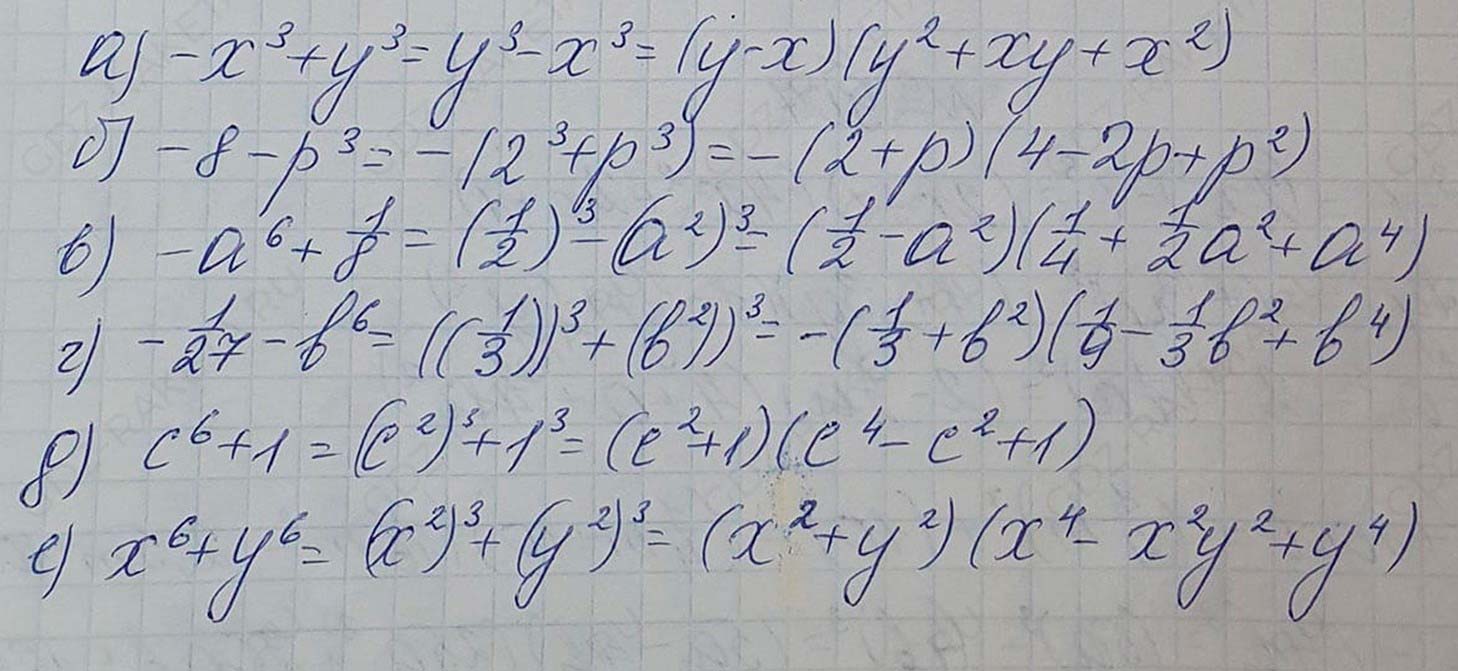 а) -x³+y³=y³-x³=(y-x)(y²+xy+x²)
б) -8-p³=-(2³+p³)=-(2+p)(4-2p+p²)
в) -a⁶+1/8=(1/2)³-(a²)³=(1/2-a²)(1/4+1/2a²+a⁴)
г) -1/27-b⁶=((1/3))³+(b²))³=-(1/3+b²)(1/9-1/3b²+b⁴)
д) c⁶+1=(c²)³+1³=(c²+1)(c⁴-c²+1)
е) x⁶+y⁶=(x²)³+(y²)³=(x²+y²)(x⁴-x²y²+y⁴)